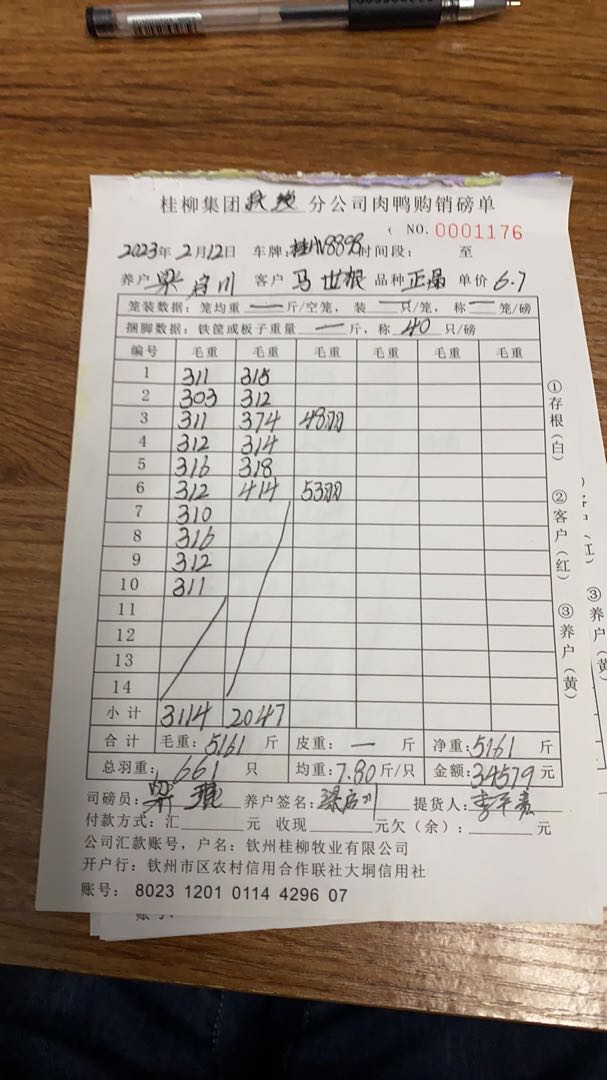 桂柳集团 钦州 分公司肉鸭购销磅单
( NO. 0001176
2023年 2月12日 车牌: 时间段: 至
养户 梁启川 客户 马世根 品种 正番 单价 6.7
笼装数据: 笼均重 一 斤/空笼, 装 一 只/笼, 称 一 笼/磅
捆脚数据: 铁筐或板子重量 一 斤, 称 40 只/磅
编号 毛重 毛重 毛重 毛重 毛重 毛重
1 311 315
2 303 312
3 311 374 48羽
4 312 314
5 316 318
6 312 414 53羽
7 310
8 316
9 312
10 311
11
12
13
14
小计 3114 2047
合计 毛重: 5161 斤 皮重: 一 斤 净重: 5161 斤
总羽重: 661 只 均重: 7.80 斤/只 金额: 34579 元
司磅员: 梁 养户签名: 梁启川 提货人:
付款方式: 汇 元 收现 元欠(余): 元
公司汇款账号, 户名: 钦州桂柳牧业有限公司
开户行: 钦州市区农村信用合作联社大垌信用社
账号: 8023 1201 0114 4296 07
①存根(白)
②客户(红)
③养户(黄)
③养户(黄)
账号: